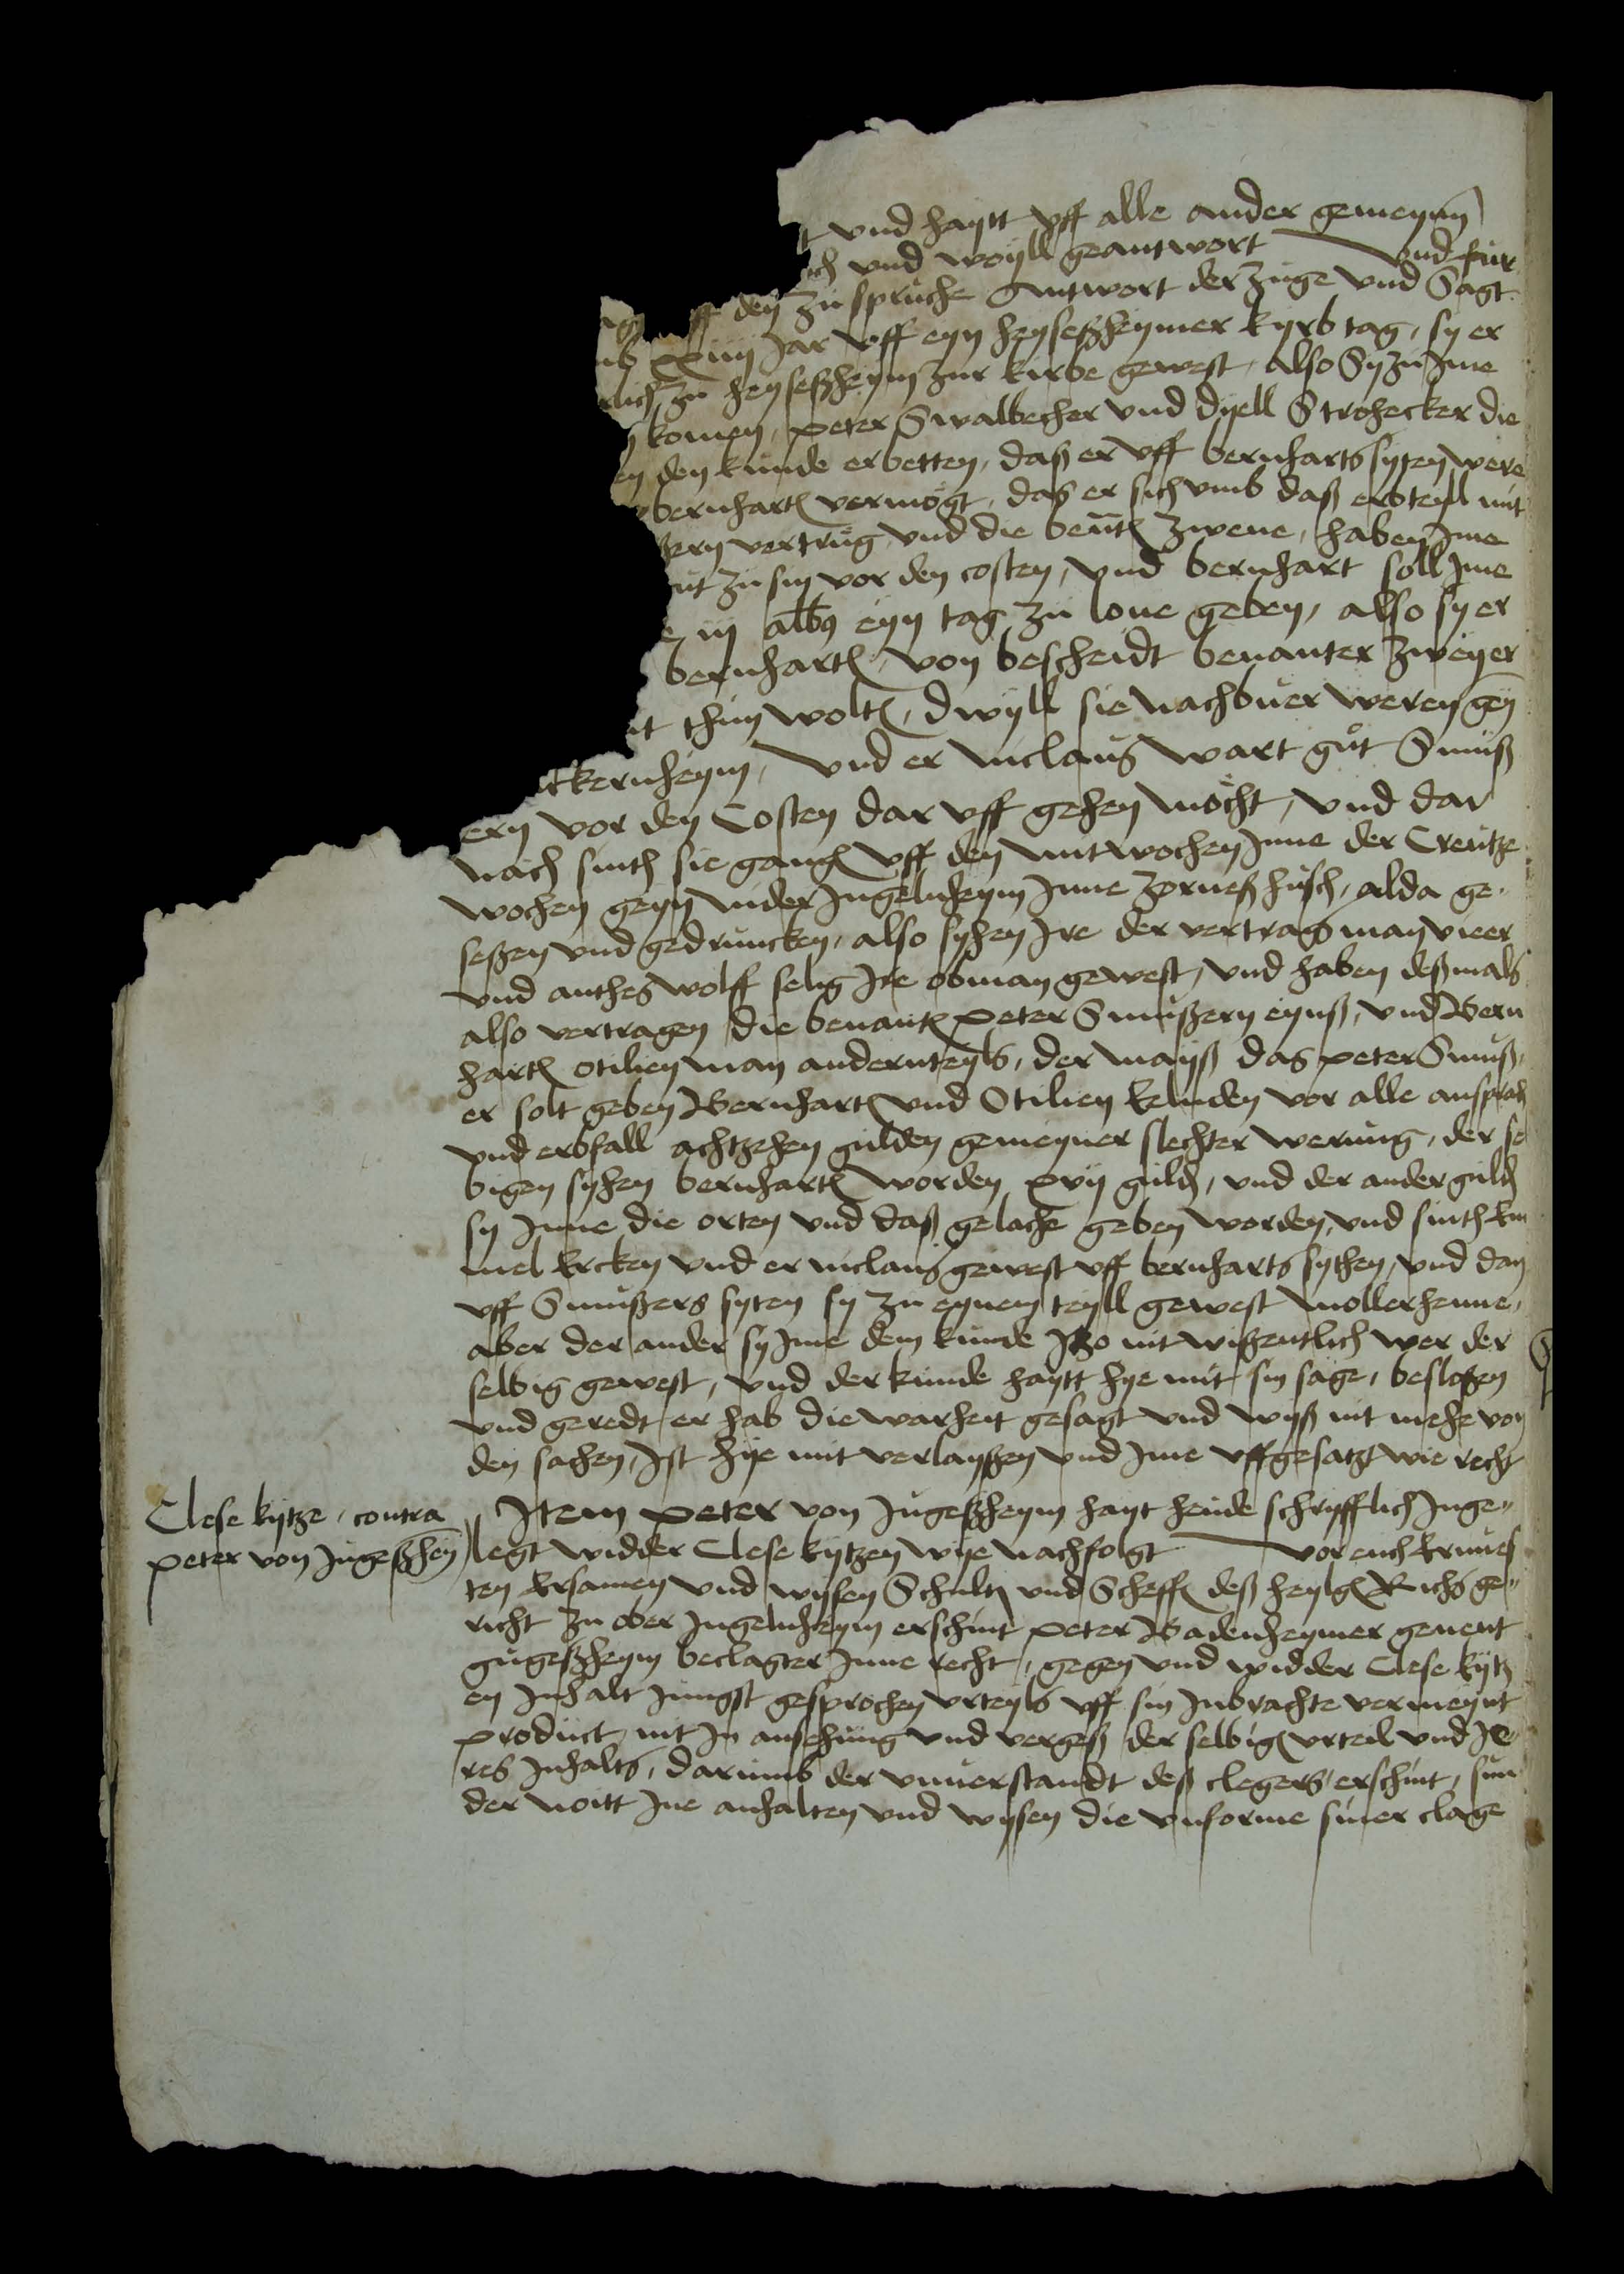 t vnd haytt vff alle ander gemeynn
ich vnd woyll geantwort vnd für
ff den zu spruche Antwort der zuge vnd Sagt
vmb xiiij Jar vff eyn heyseßheymer kyrb tag, sy er
rlich zu heyseßheym zur kirbe gewest, also Sy zu Jme
komen, Peter Swalbecher vnd dyell Strohecker die
en den kunde erbetten, daß er vff bernharts syten were
bernhartē vermogt, das er sich vmb daß erbteyl mit
ßern vertrug vnd die bentē zwene, haben Jme
gut zu sin vor den costen, vnd bernhart soll Jme
e iij albꝯ eyn tag zu lone geben, also sy er
bernhartē, von bescheidt benanter zweyer
it thun woltē, dwyll sie nachbuer weren gen
ckernheym, vnd er niclaus wart gut Smuß
ern vor den Costen dar vff gehen mocht, vnd dar
nach sinth sie gangē vff den mitwochen Jnne der Creutze
wochen geyn nider Jngelnheym Jnne zorneß husch, alda ge-
seßen vnd gedruncken, also syhen Jre der vertrags man vieer
vnd anthes wolff selig Jre obman gewest, vnd haben deßmals
also vertragen die benantē Peter Smußern eynß, vnd Bern
hartē otilien man andernteyls, der mayß das peter Smuß-
er solt geben Bernhartē vnd Otilien kynden vor alle ansprach
vnd erbfall achtzehen gulden gemeyner slechter werung, der se
bigen syhen bernhartē worden xvij guldē, vnd der ander guldē
sy Jnne die orten vnd daß gelache geben worden, vnd sinth Em
mel Ercken vnd er niclaus gewest vff bernharts sythen, vnd dan
vff Smußers syten sy zu eynem teyll gewest mollerhenne,
aber der ander sy Jme dem kunde Jtzo nit wißentlich wer der
selbig gewest, vnd der kunde haytt hye mit sin sage, besloßen
vnd geredt er hab die warheit gesagt vnd wyß nit mehe von
den sachen, Jst hye mit verlayßen vnd Jme vffgesatzt wie recht
Clese kytze, contra
peter von Jugeßheȳ
Jtem Peter von Jugeßheym hayt heude schryfftlich Jnge-
legt widder Clese kytzen wye nachfolgt vor euch Ernues
ten Ersamen vnd wysen Schultē vnd Scheffē deß heylgē Richs ge-
richt zu ober Jngelnheym erschint Peter Badenheymer genent
gugeßheym beclagter Jnne recht, gegen vnd widder Clese kytz
en Jnhalt Jungst gesprochen vrteyls vff sin Jnbrachte vermeynt
product, nit Jn ansehung vnd vergeß der selbigē vrteil vnd Je-
res Jnhalts, darumb der vnuerstandt deß clegers erschint, sun
der noitt Jne anhalten vnd wysen die vnforme siner clage